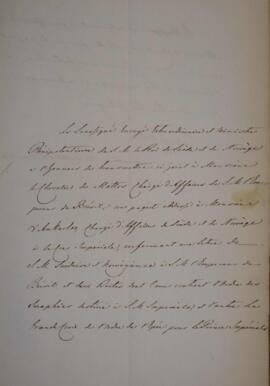 Le Soussigné Envoyé Extraordinaire et Ministre
Plénipotentiaire de S. M. le Roi de Suède et de Norvège
a l'honneur de transmettre ci joint à Monsieur
le Chevalier de Mattos Chargé d'Affaires de S. M. l'Em
pereur du Brésil, un paquet adressé à Monsieur
Chargé d'Affaires de Suède et de Norvège
à la Cour Impériale, renfermant une lettre de
S. M. Suédoise et Norvégienne à S. M. l'Empereur du
Brésil et deux dont l'une contient l'Ordre des
Séraphins destiné à S. M. Impériale, et l'autre la
Grande Croix de l'Ordre de pour le Prince Impérial